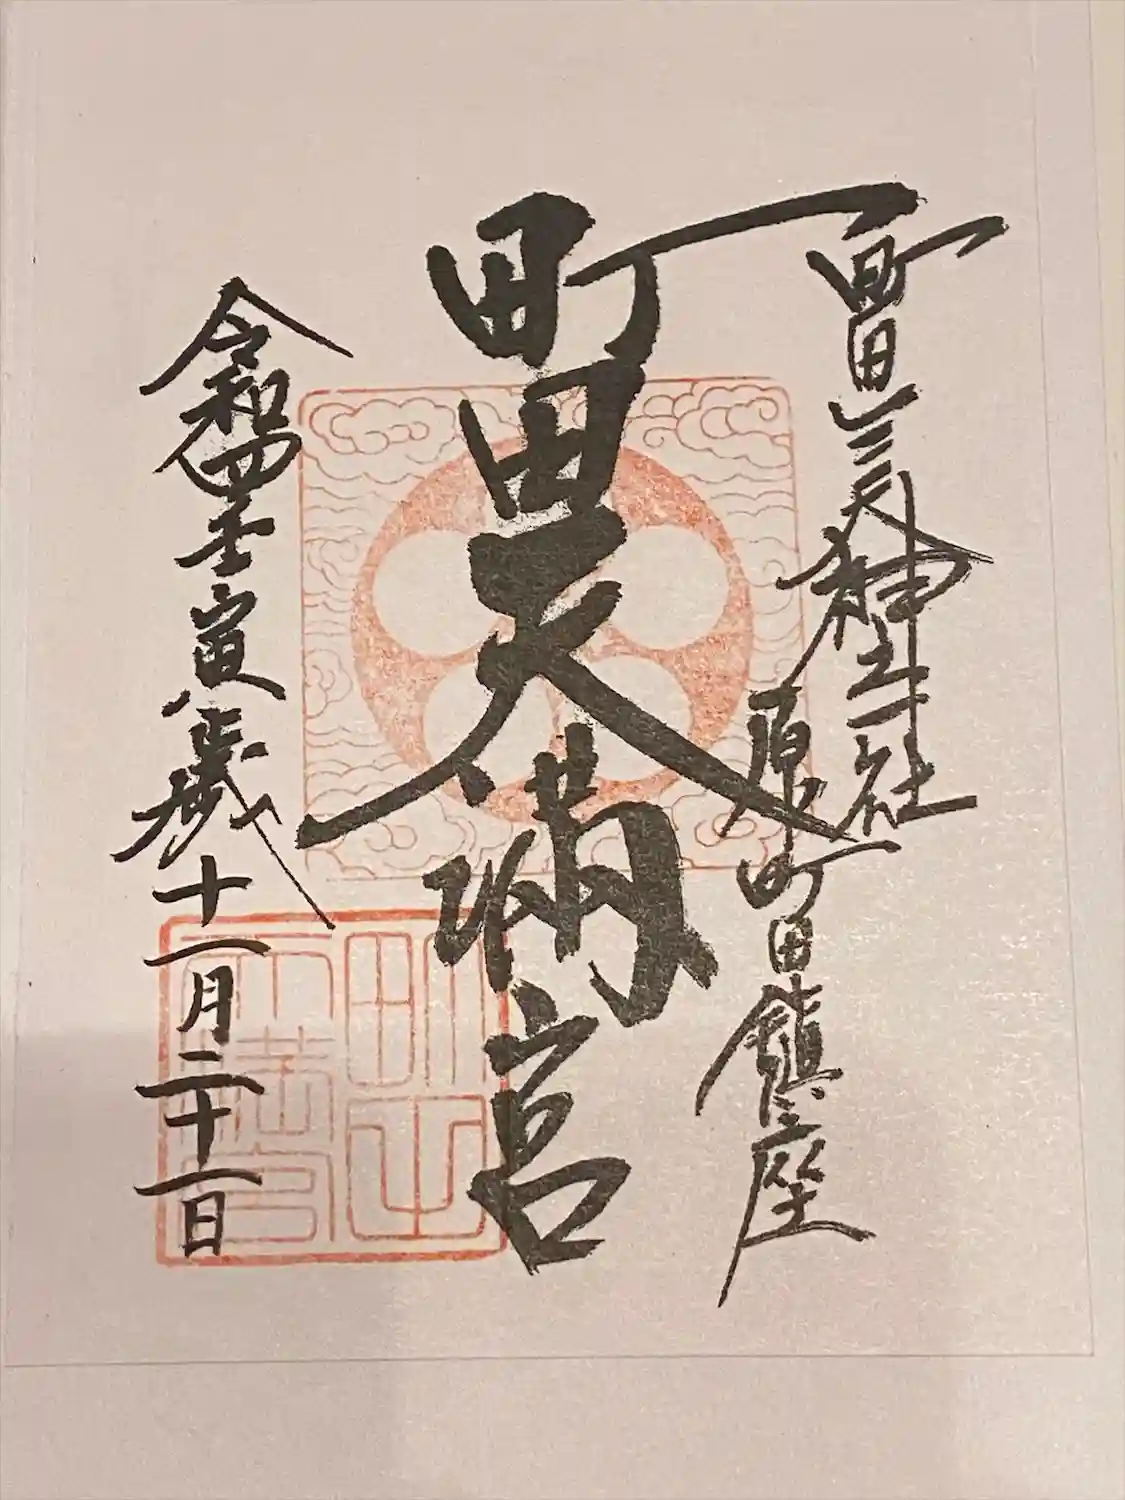 町田三天神之一社
原町田鎮座
町田天満宮
令和四壬寅歳十一月二十一日
町田
天満宮